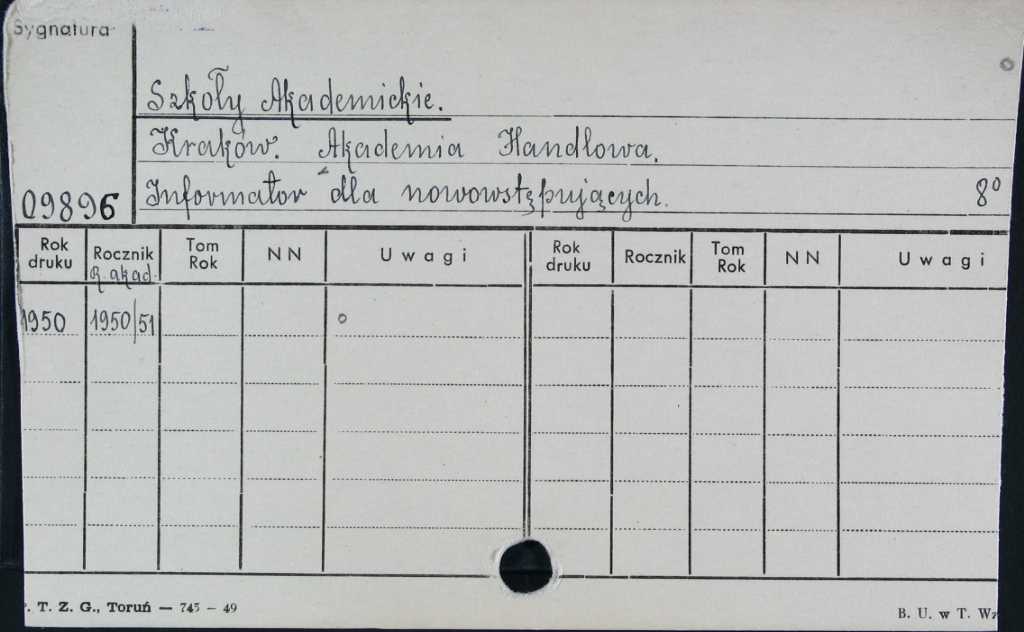 Sygnatura
Szkoły Akademickie.
Kraków. Akademia Handlowa.
09896 Informator dla nowowstępujących. 8°
Rok druku Rocznik Tom Rok NN Uwagi Rok druku Rocznik Tom Rok NN Uwagi
R. akad.
1950 1950/51 o
. T. Z. G., Toruń — 745 – 49 B. U. w T. Wz